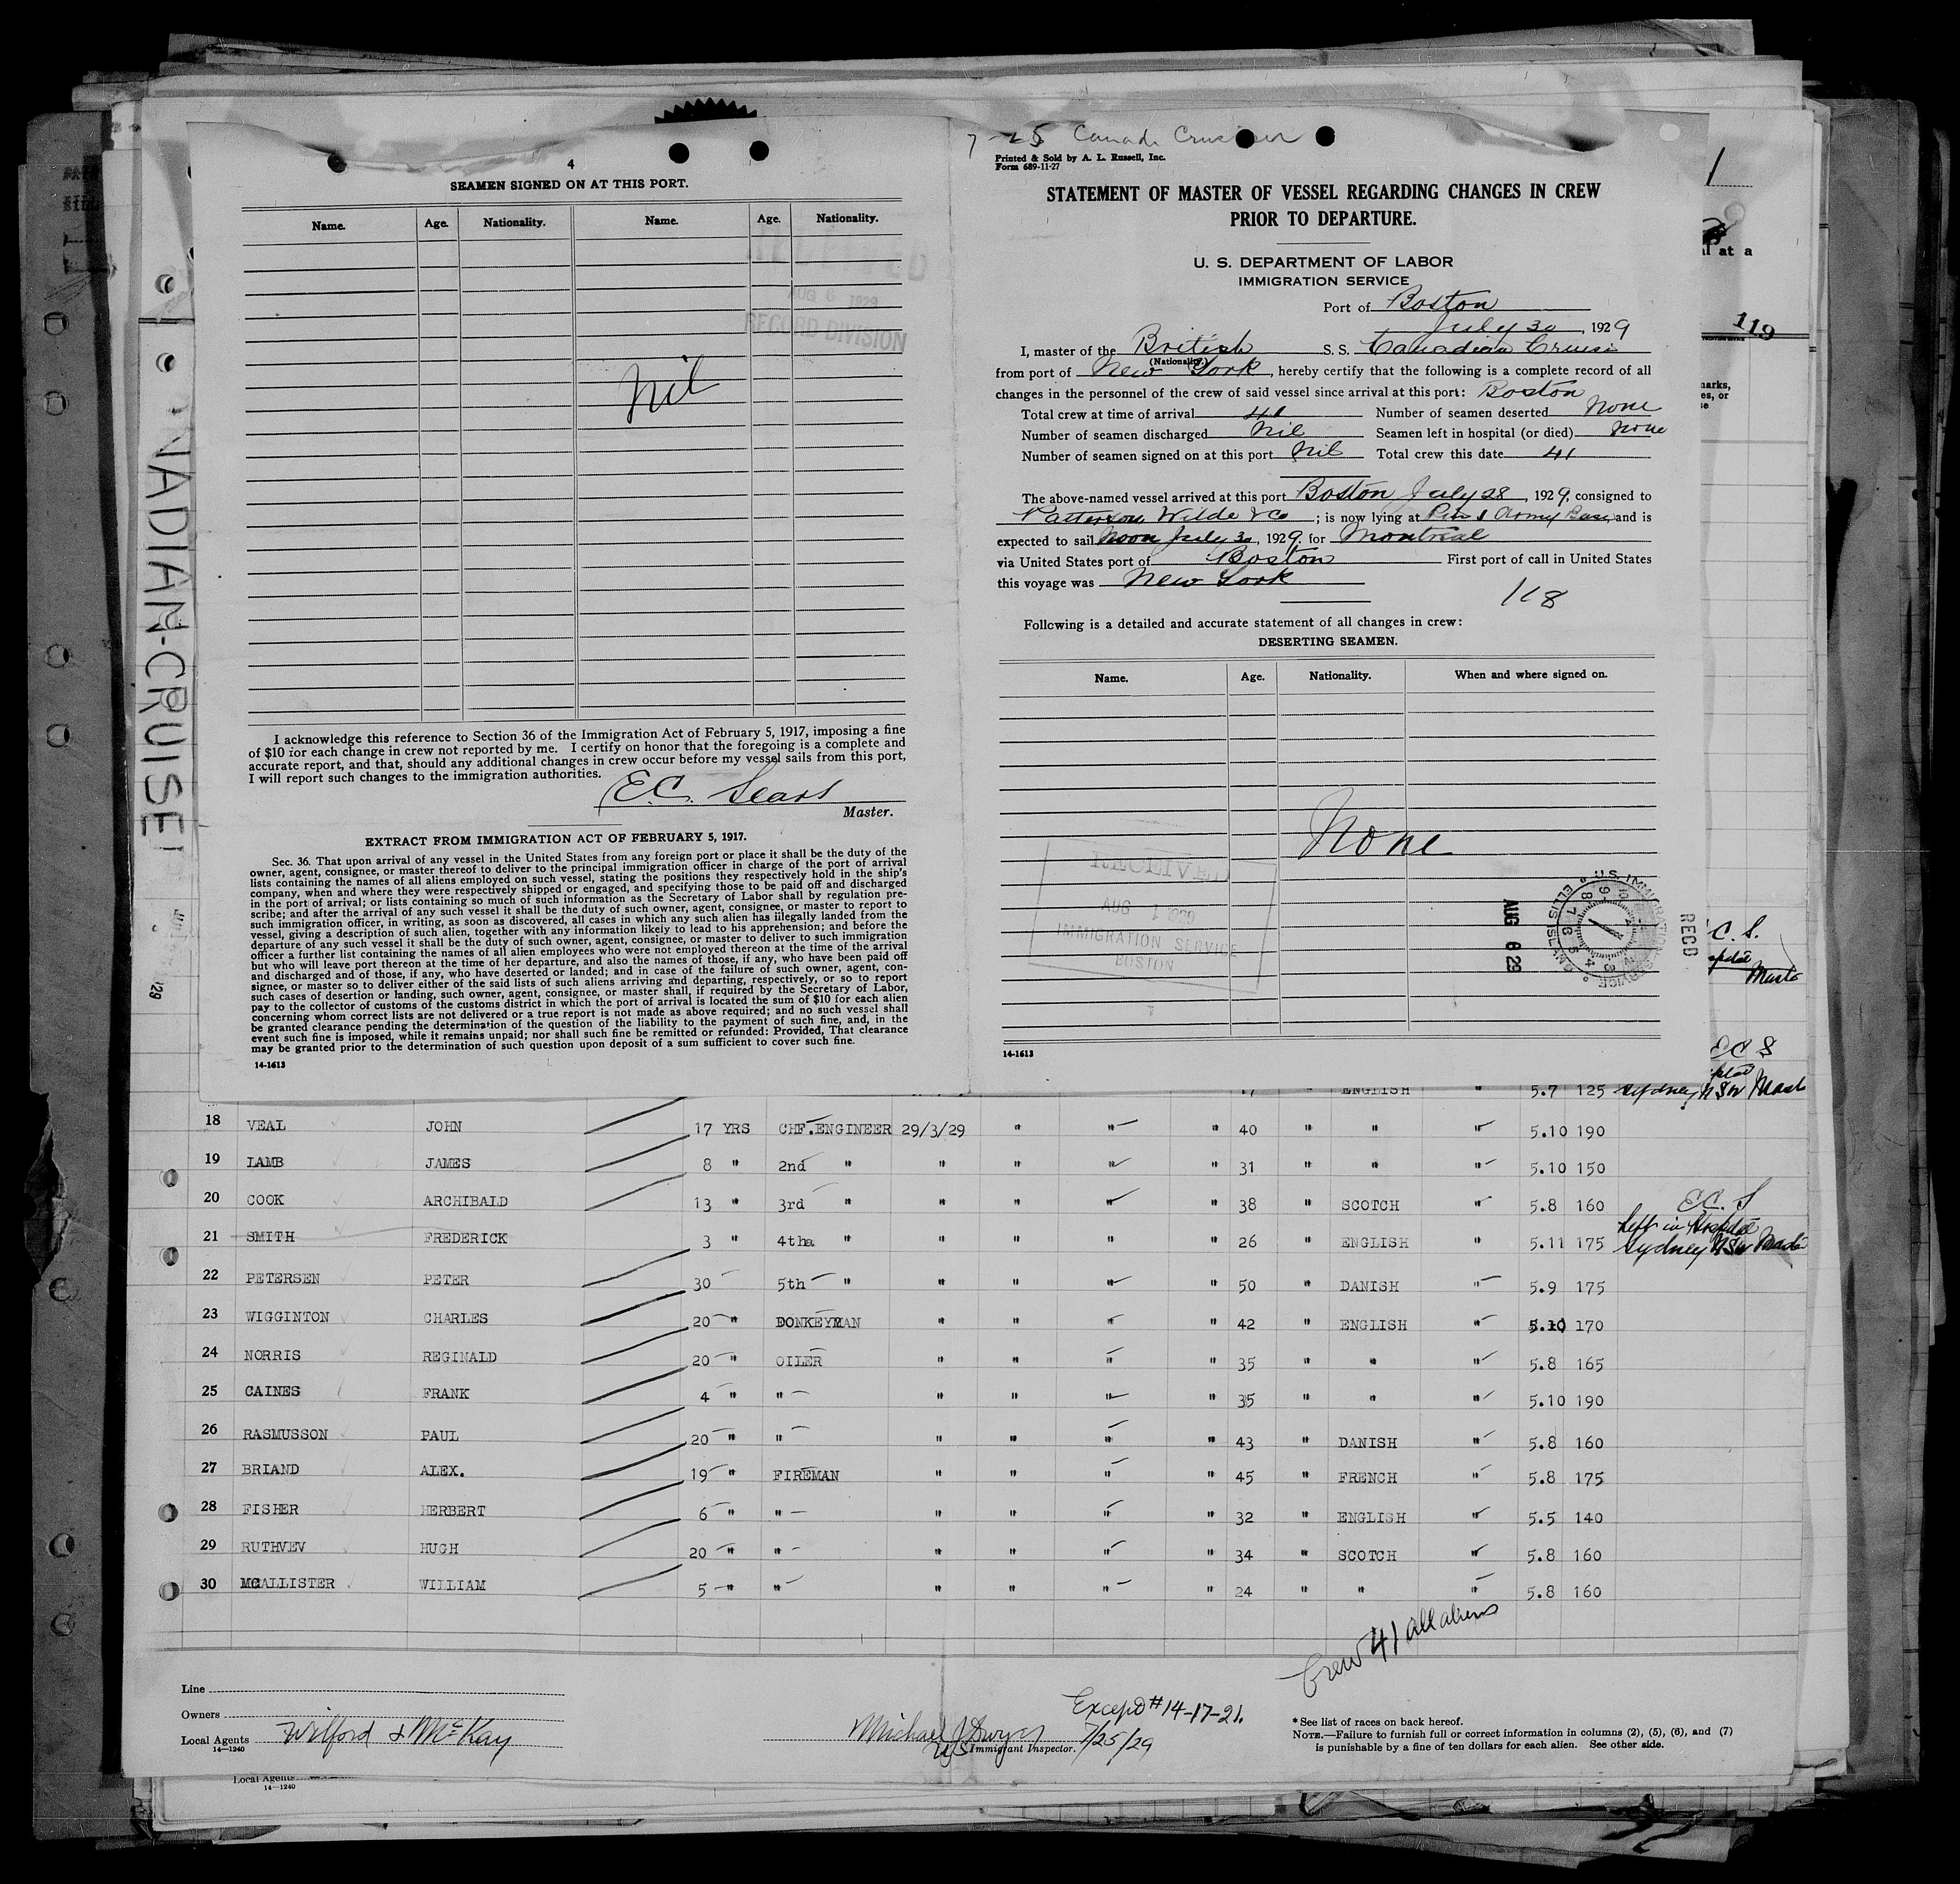 4
SEAMEN SIGNED ON AT THIS PORT.
Name. Age. Nationality. Name. Age. Nationality.
RECEIVED
AUG 6 1929
RECORD DIVISION
Nil
I acknowledge this reference to Section 36 of the Immigration Act of February 5, 1917, imposing a fine
of $10 for each change in crew not reported by me. I certify on honor that the foregoing is a complete and
accurate report, and that, should any additional changes in crew occur before my vessel sails from this port,
I will report such changes to the immigration authorities.
E.C. Sears
Master.
EXTRACT FROM IMMIGRATION ACT OF FEBRUARY 5, 1917.
Sec. 36. That upon arrival of any vessel in the United States from any foreign port or place it shall be the duty of the
owner, agent, consignee, or master thereof to deliver to the principal immigration officer in charge of the port of arrival
lists containing the names of all aliens employed on such vessel, stating the positions they respectively hold in the ship's
company, when and where they were respectively shipped or engaged, and specifying those to be paid off and discharged
in the port of arrival; or lists containing so much of such information as the Secretary of Labor shall by regulation pre-
scribe; and after the arrival of any such vessel it shall be the duty of such owner, agent, consignee, or master to report to
such immigration officer, in writing, as soon as discovered, all cases in which any such alien has illegally landed from the
vessel, giving a description of such alien, together with any information likely to lead to his apprehension; and before the
departure of any such vessel it shall be the duty of such owner, agent, consignee, or master to deliver to such immigration
officer a further list containing the names of all alien employees who were not employed thereon at the time of the arrival
but who will leave port thereon at the time of her departure, and also the names of those, if any, who have been paid off
and discharged and of those, if any, who have deserted or landed; and in case of the failure of such owner, agent, con-
signee, or master so to deliver either of the said lists of such aliens arriving and departing, respectively, or so to report
such cases of desertion or landing, such owner, agent, consignee, or master shall, if required by the Secretary of Labor,
pay to the collector of customs of the customs district in which the port of arrival is located the sum of $10 for each alien
concerning whom correct lists are not delivered or a true report is not made as above required; and no such vessel shall
be granted clearance pending the determination of the question of the liability to the payment of such fine, and, in the
event such fine is imposed, while it remains unpaid; nor shall such fine be remitted or refunded: Provided, That clearance
may be granted prior to the determination of such question upon deposit of a sum sufficient to cover such fine.
14-1613
Printed & Sold by A. L. Russell, Inc.
Form 689-11-27
STATEMENT OF MASTER OF VESSEL REGARDING CHANGES IN CREW
PRIOR TO DEPARTURE.
U. S. DEPARTMENT OF LABOR
IMMIGRATION SERVICE
Port of Boston
July 30, 1929
I, master of the British S. S. Canadian Cruiser
(Nationality.)
from port of New York, hereby certify that the following is a complete record of all
changes in the personnel of the crew of said vessel since arrival at this port: Boston
Total crew at time of arrival 41 Number of seamen deserted None
Number of seamen discharged Nil Seamen left in hospital (or died) None
Number of seamen signed on at this port Nil Total crew this date 41
The above-named vessel arrived at this port Boston July 28, 1929, consigned to
Patterson Wilde & Co; is now lying at Pier 1 Army Base, and is
expected to sail Noon July 30, 1929, for Montreal
via United States port of Boston First port of call in United States
this voyage was New York
118
Following is a detailed and accurate statement of all changes in crew:
DESERTING SEAMEN.
Name. Age. Nationality. When and where signed on.
None
AUG 1 1929
IMMIGRATION SERVICE
BOSTON
AUG 6 29
U.S. IMMIGRATION SERVICE ELLIS ISLAND
RECD
14-1613
CANADIAN-CRUISE
1
at a
119
C. S.
E C S
17 " ENGLISH " 5.7 125 Sydney NSW
18 VEAL JOHN 17 YRS CHF.ENGINEER 29/3/29 " " " 40 " " " 5.10 190
19 LAMB JAMES 8 " 2nd " " " " " 31 " " " 5.10 150
20 COOK ARCHIBALD 13 " 3rd " " " " " 38 " SCOTCH " 5.8 160 E.C. S
21 SMITH FREDERICK 3 " 4th " " " " " 26 " ENGLISH " 5.11 175 Left in Hospital Sydney NSW
22 PETERSEN PETER 30 5th " " " " " 50 " DANISH " 5.9 175
23 WIGGINTON CHARLES 20 " DONKEYMAN " " " " 42 " ENGLISH " 5.10 170
24 NORRIS REGINALD 20 " OILER " " " " 35 " " " 5.8 165
25 CAINES FRANK 4 " " " " " " 35 " " " 5.10 190
26 RASMUSSON PAUL 20 " " " " " " 43 " DANISH " 5.8 160
27 BRIAND ALEX. 19 " FIREMAN " " " " 45 " FRENCH " 5.8 175
28 FISHER HERBERT 6 " " " " " " 32 " ENGLISH " 5.5 140
29 RUTHVEV HUGH 20 " " " " " " 34 " SCOTCH " 5.8 160
30 MCALLISTER WILLIAM 5 " " " " " " 24 " " " 5.8 160
Crew 41 all aliens
Line
Owners
Local Agents Wilford & McKay
14-1240
Except #14-17-21.
Michael J Dwyer
US Immigrant Inspector. 7/25/29
* See list of races on back hereof.
NOTE.—Failure to furnish full or correct information in columns (2), (5), (6), and (7)
is punishable by a fine of ten dollars for each alien. See other side.
Local Agents
14-1240